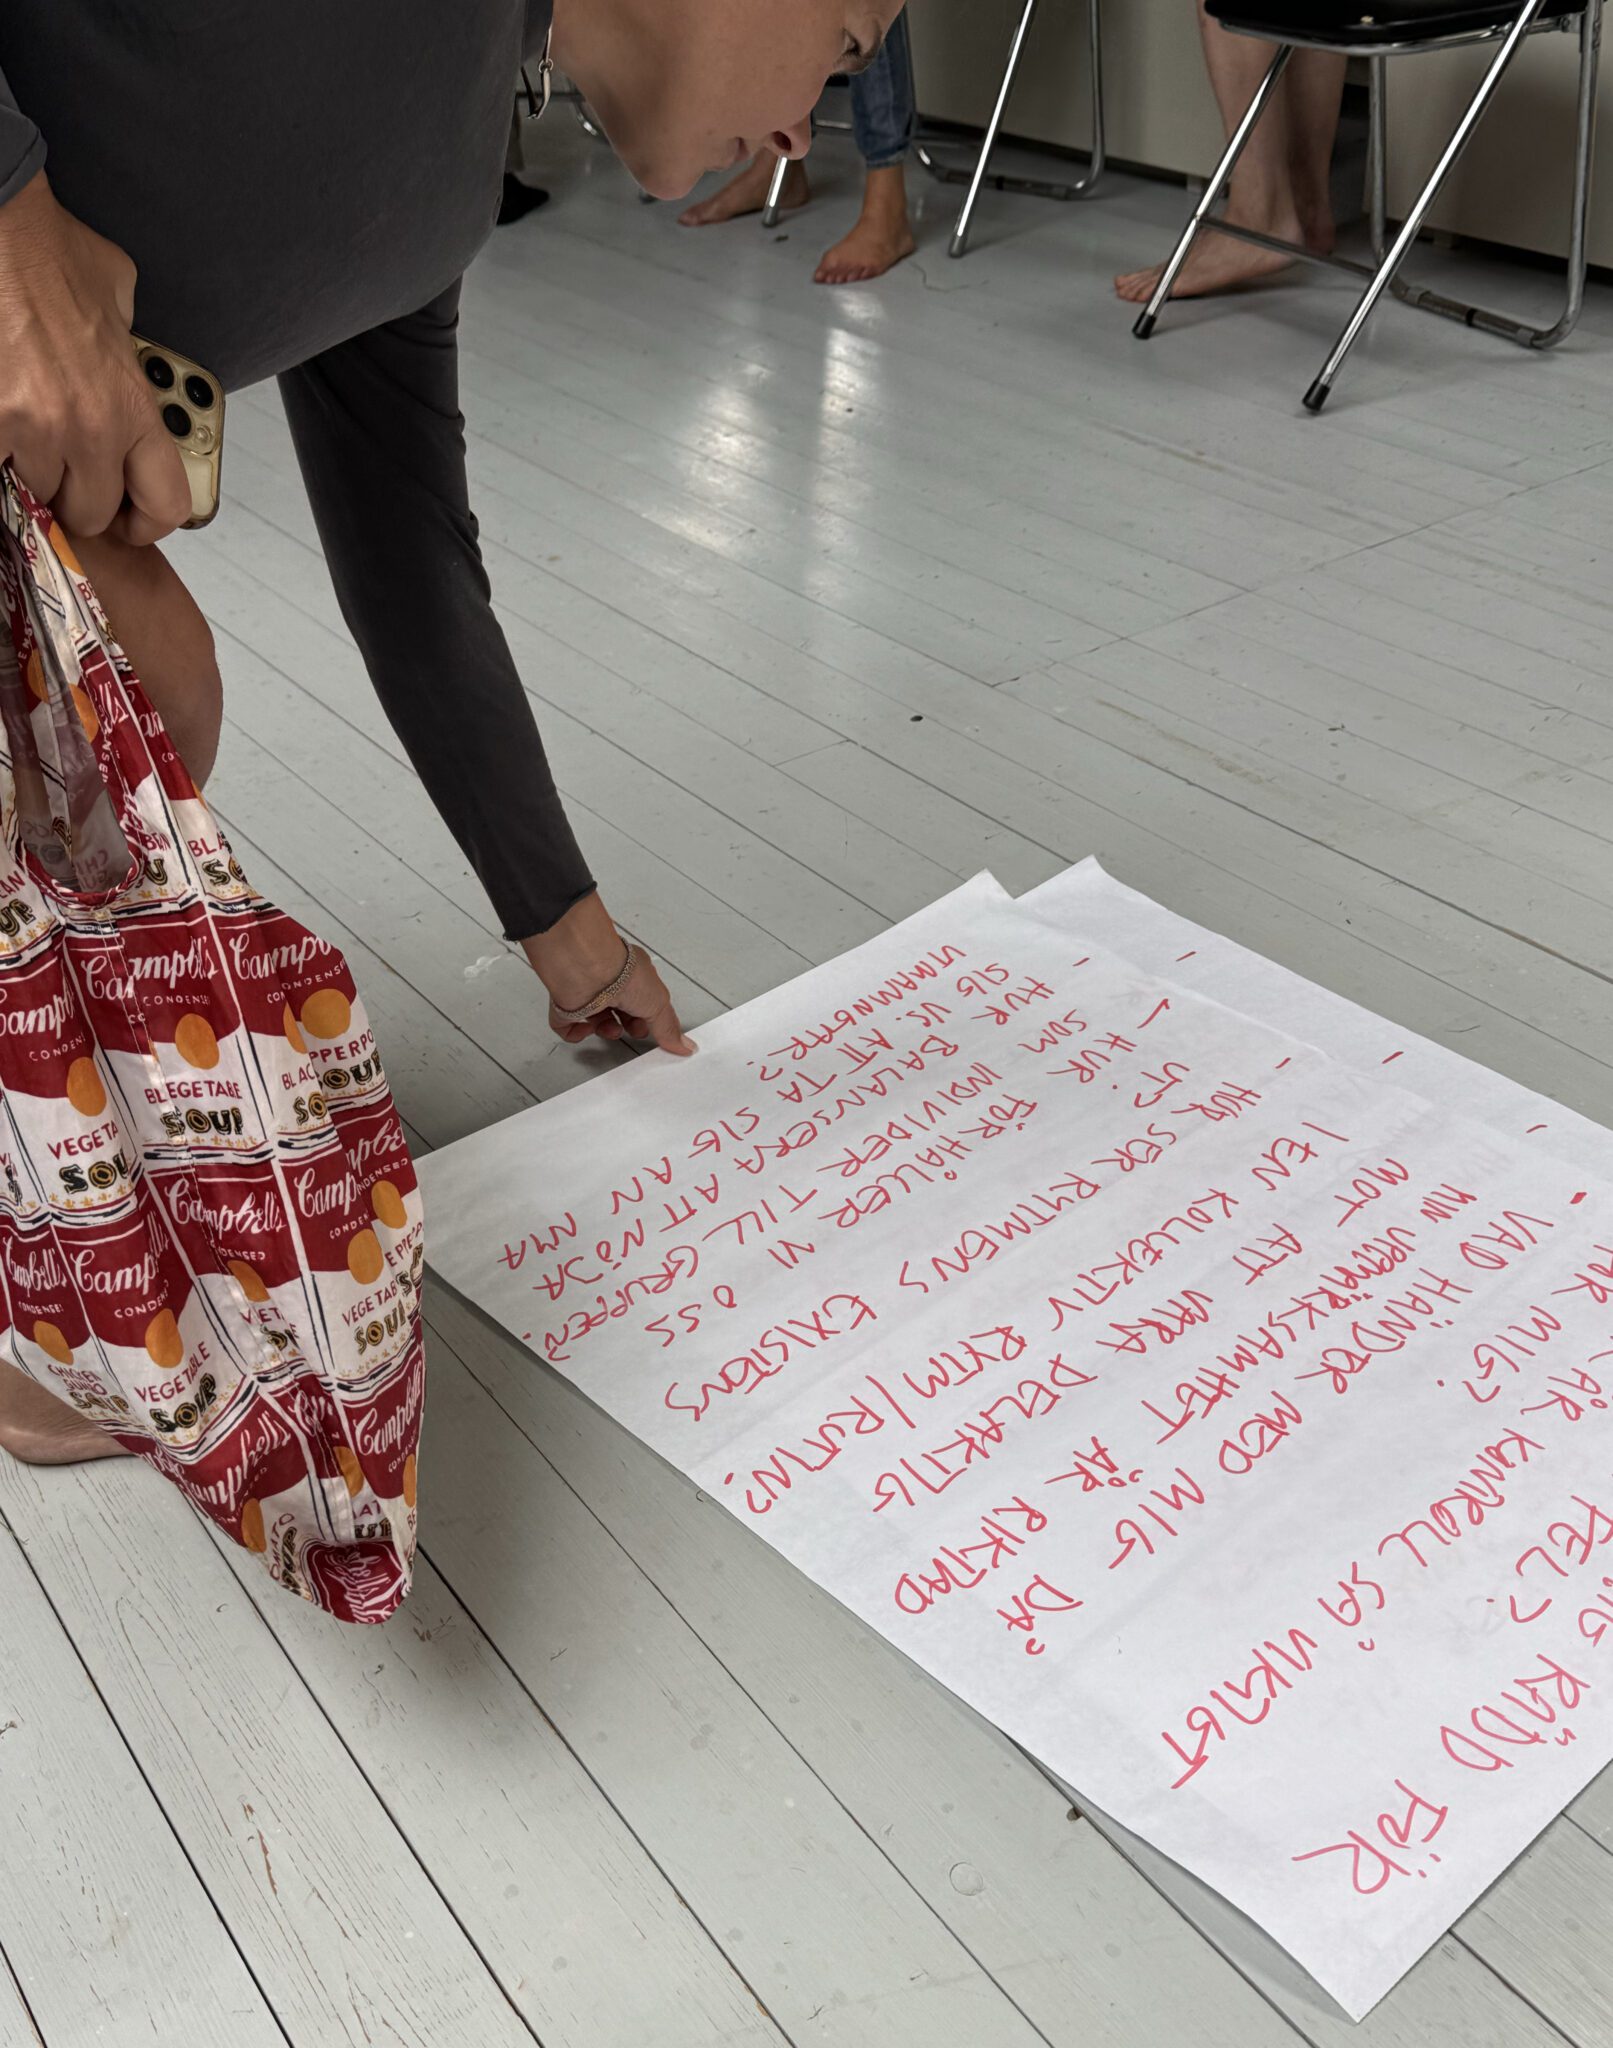 RÄDD FÖR
FEL?
ÄR KONTROLL SÅ VIKTIGT
MIG?
- VAD HÄNDER MED MIG DÅ
MIN UPPMÄRKSAMHET ÄR RIKTAD
MOT ATT VARA DELAKTIG
I EN KOLLEKTIV RYTM/RUTIN?
- HUR SER RYTMENS EXISTENS
UT?
- HUR FÖRHÅLLER VI OSS
SOM INDIVIDER TILL GRUPPEN?
- HUR BALANSERA ATT NÖJA
SIG VS. ATT TA SIG AN NYA
UTMANINGAR?
Campbell's
CONDENSED
VEGETABLE
SOUP